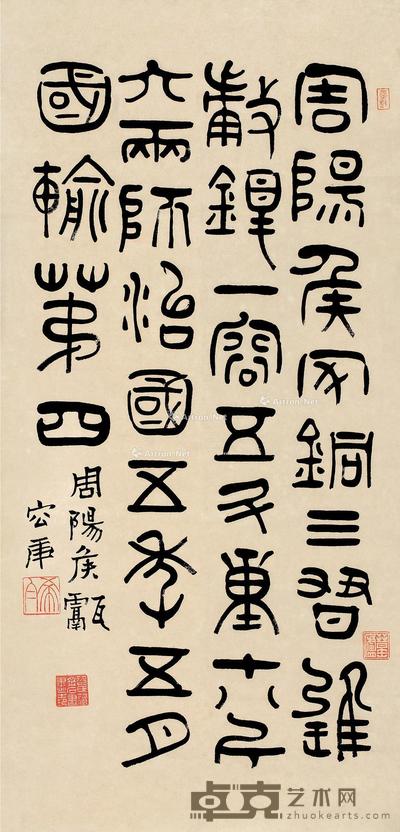 周陽侯家銅三習
鍑一容五斗重十八斤
六兩師治國五年五月
國輸第四
周陽侯甗
容庚
Artron.Net
卓克艺术网
zhuokearts.com